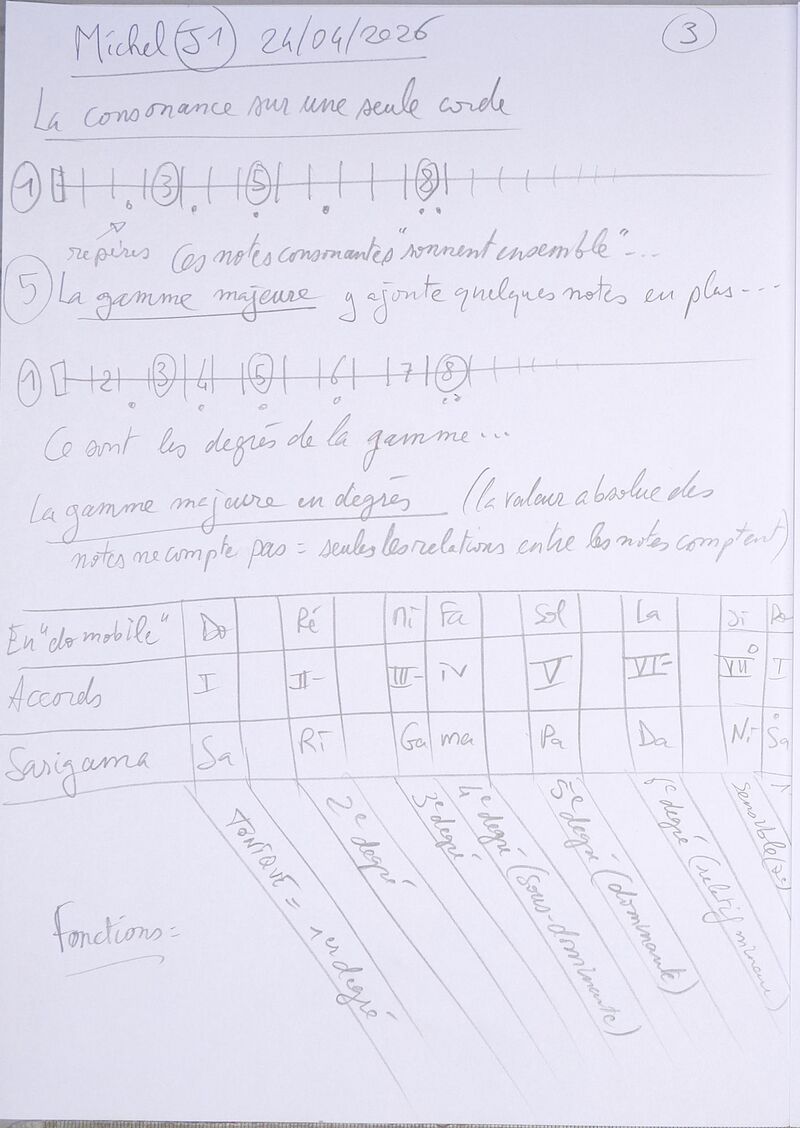 Michel (J1) 24/04/2026
3
La consonance sur une seule corde
1 3 5 8
repères Ces notes consonantes "sonnent ensemble"...
5 La gamme majeure y ajoute quelques notes en plus...
1 2 3 4 5 6 7 8
Ce sont les degrés de la gamme...
La gamme majeure en degrés (la valeur absolue des
notes ne compte pas = seules les relations entre les notes comptent)
En "do mobile" Do Ré Mi Fa Sol La Si Do
Accords I II- III- IV V VI- VII° I
Sarigama Sa Ri Ga ma Pa Da Ni Sa
Fonctions =
TONIQUE = 1er degré
2e degré
3e degré
4e degré (sous-dominante)
5e degré (dominante)
6e degré (relatif mineur)
sensible (7e)